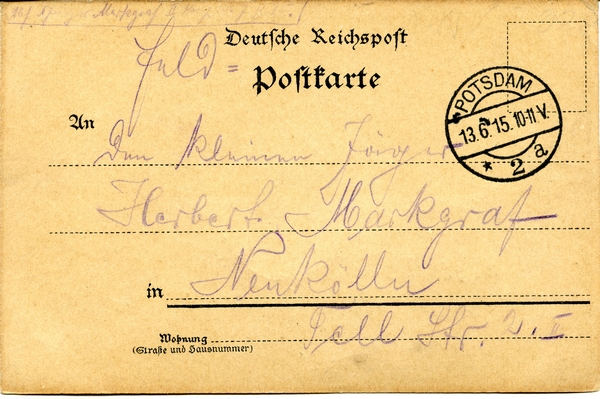 Markgraf
Deutsche Reichspost
Feld =
Postkarte
POTSDAM
13.6.15.10-11 V.
* 2 a
An
Den kleinen Jäger
Herbert Markgraf
in Neukölln
Wohnung
(Straße und Hausnummer)
Tell Str. 2. I